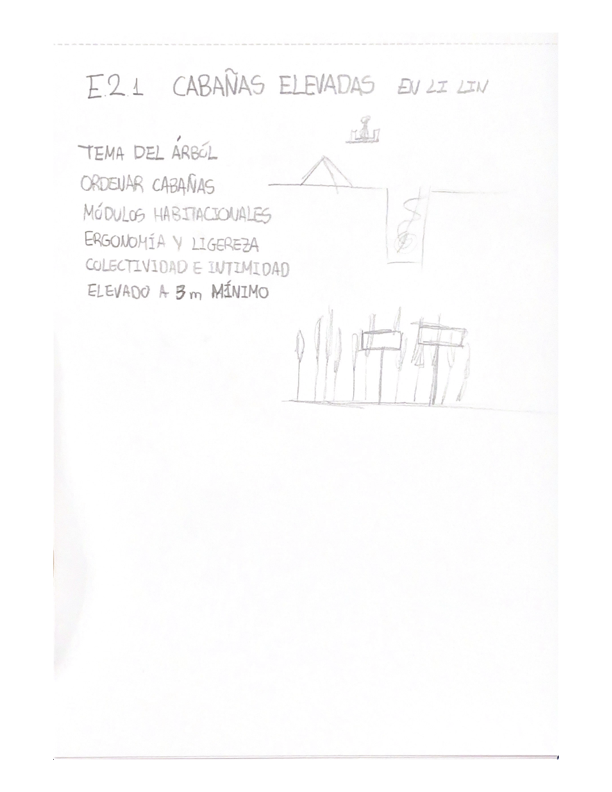 E.2.1 CABAÑAS ELEVADAS EN LI LIN
TEMA DEL ÁRBOL
ORDENAR CABAÑAS
MÓDULOS HABITACIONALES
ERGONOMÍA Y LIGEREZA
COLECTIVIDAD E INTIMIDAD
ELEVADO A 3m MÍNIMO